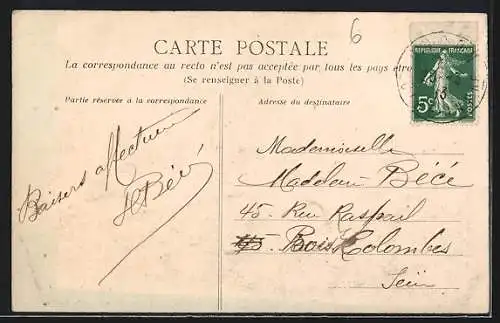 6
CARTE POSTALE
La correspondance au recto n'est pas acceptée par tous les pays étro
(Se renseigner à la Poste)
Partie réservée à la correspondance
Adresse du destinataire
REPUBLIQUE FRANÇAISE
5c
POSTES
Baisers affectueux
Mademoiselle
Madeleine Bécé
45. Rue Raspail
45. Bois Colombes
Seine